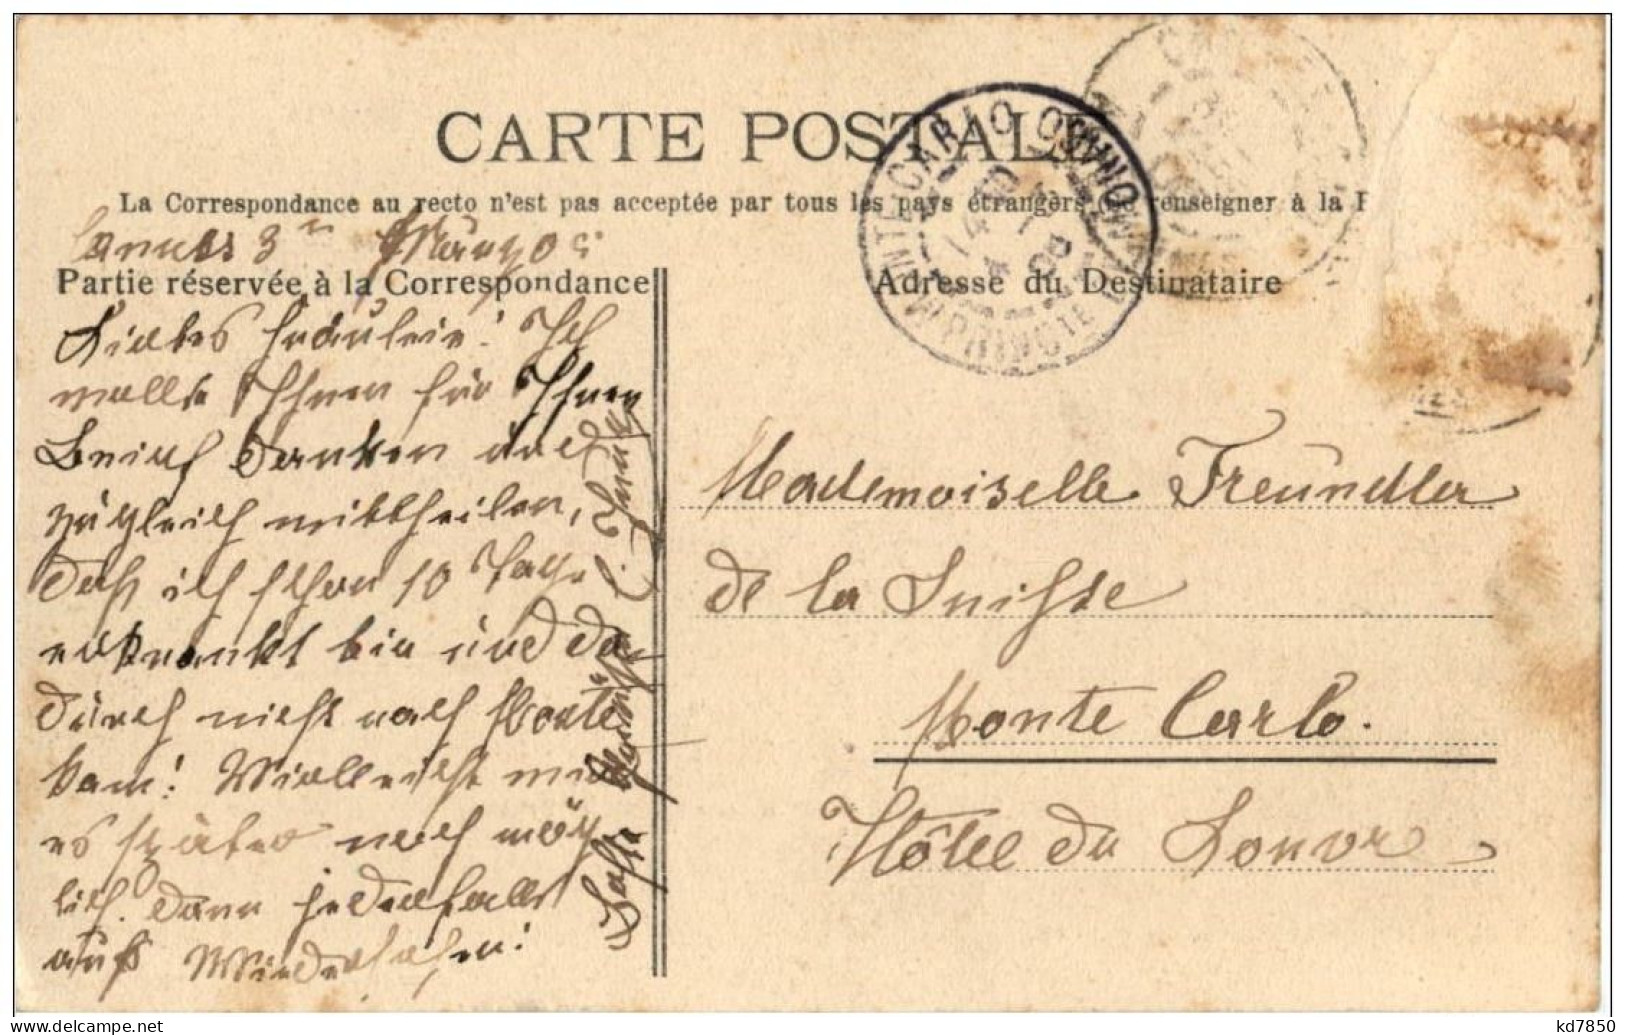 CARTE POSTALE
La Correspondance au recto n'est pas acceptée par tous les pays étrangers renseigner à la
Cannes 3ten März 05
Partie réservée à la Correspondance
Adresse du Destinataire
MONTE CARLO
PRINCIPAUTE DE MONACO
Liebes Fräulein! Ich
wollte Ihnen für Ihren
Brief danken und
zugleich mittheilen,
daß ich schon 10 Tage
erkrankt bin und da
durch nicht nach Monte
kam! Vielleicht wird
es später noch mög
lich. Dann jedenfalls
auf Wiedersehen!
Mademoiselle Freundler
de la Suisse
Monte Carlo.
Hôtel du Louvre
kd7850